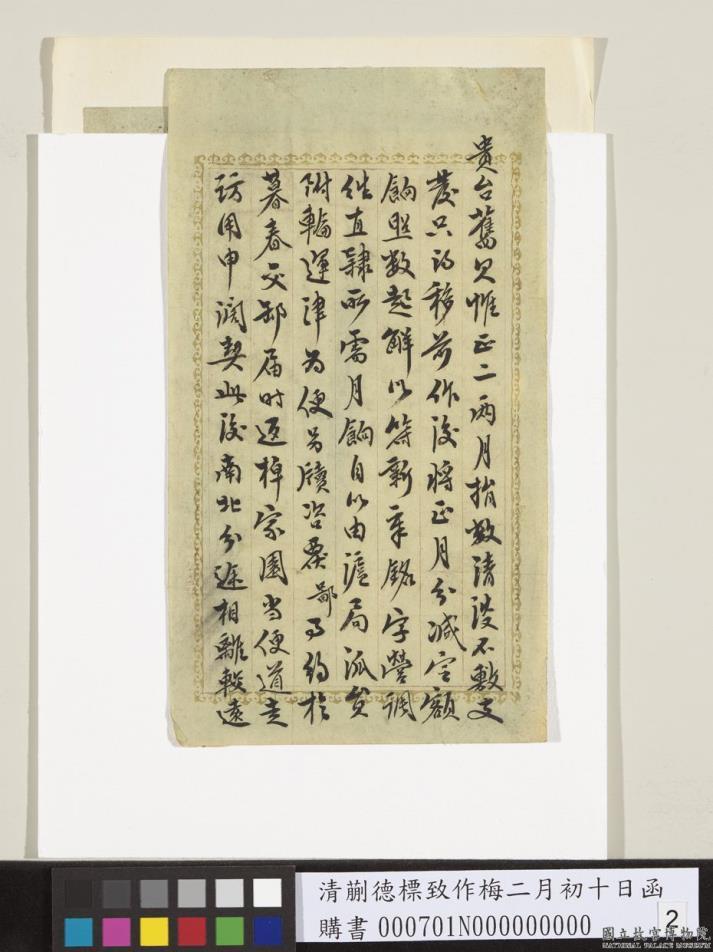 貴台舊欠惟正二兩月指數清波不敷支
發只得移前作後將正月分減定額
餉照數起解以符新章銘字營調
往直隸所需月餉自以由滬局派員
附輪運津為便另牘咨要鄙事約於
暮春交卸屆時返棹家園當便道走
訪用申濶契此後南北分途相離較遠
清蒯德標致作梅二月初十日函
購書 000701N000000000
2
國立故宮博物院
NATIONAL PALACE MUSEUM